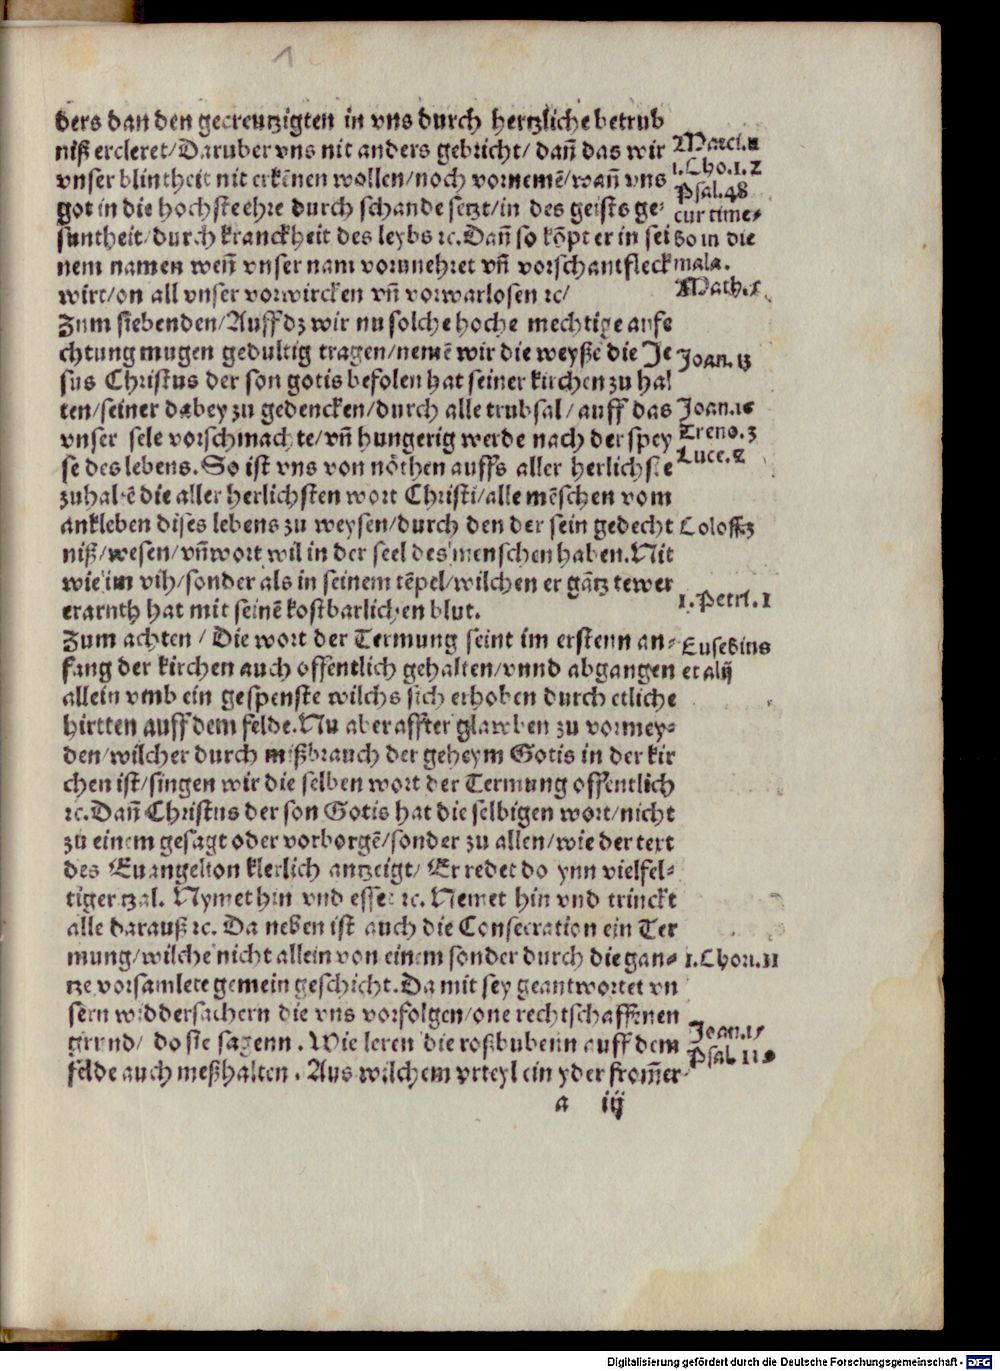 1
ders dan den gecreutzigten in vns durch hertzliche betrub
niß ercleret/Daruber vns nit anders gebricht/ dañ das wir
vnser blintheit nit erkēnen wollen/noch vornemē/wañ vns
got in die hochste ehre durch schande setzt/in des geists ge⸗
suntheit/durch kranckheit des leybs ꝛc. Dañ so kōpt er in sei
nem namen weñ vnser nam vorunehret vñ vorschantfleck
wirt/on all vnser vorwircken vñ vorwarlosen ꝛc/
Zum siebenden/Auff dz wir nu solche hoche mechtige anfe
chtung mugen gedultig tragen/nemē wir die weyße die Je
sus Christus der son gotis befolen hat seiner kirchen zu hal
ten/seiner dabey zu gedencken/durch alle trubsal/auff das
vnser sele vorschmachte/vñ hungerig werde nach der spey
se des lebens. So ist vns von nöthen auffs aller herlichste
zuhalbē die aller herlichsten wort Christi/alle mēschen vom
ankleben dises lebens zu weysen/durch den der sein gedecht
niß/wesen/vñ wort wil in der seel des menschen haben. Nit
wie im vih/sonder als in seinem tēpel/wilchen er gātz tewer
erarnth hat mit seinē kostbarlichen blut.
Zum achten / Die wort der Termung seint im erstenn an⸗
fang der kirchen auch offentlich gehalten/vnnd abgangen
allein vmb ein gespenste wilchs sich erhoben durch etliche
hirtten auff dem felde. Nu aber affterglawben zu vormey⸗
den/wilcher durch mißbrauch der geheym Gotis in der kir
chen ist/singen wir die selben wort der Termung offentlich
ꝛc. Dañ Christus der son Gotis hat die selbigen wort/nicht
zu einem gesagt oder vorborgē/sonder zu allen/wie der text
des Euangelion klerlich antzeigt/ Er redet do ynn vielfel⸗
tiger tzal. Nymet hin vnd esset ꝛc. Nemet hin vnd trinckt
alle darauß ꝛc. Da neben ist auch die Consecration ein Ter
mung/wilche nicht allein von einem sonder durch die gan⸗
tze vorsamlete gemein geschicht. Da mit sey geantwortet vn
sern widdersachern die vns vorfolgen/one rechtschaffenen
grund/ do sie sagenn . Wie leren die roßbubenn auff dem
felde auch meßhalten . Aus wilchem vrteyl ein yder from̄er
a iij
1. Cho. 1. 2
Psal. 48
cur time⸗
bo in die
mala.
Joan.
Joan. 16
Treno. 3
Luce.
Coloss. 3
1. Petri. 1
Eusebius
et alij
1. Chori. 11
Joan. 15
Psal.
Digitalisierung gefördert durch die Deutsche Forschungsgemeinschaft - DFG